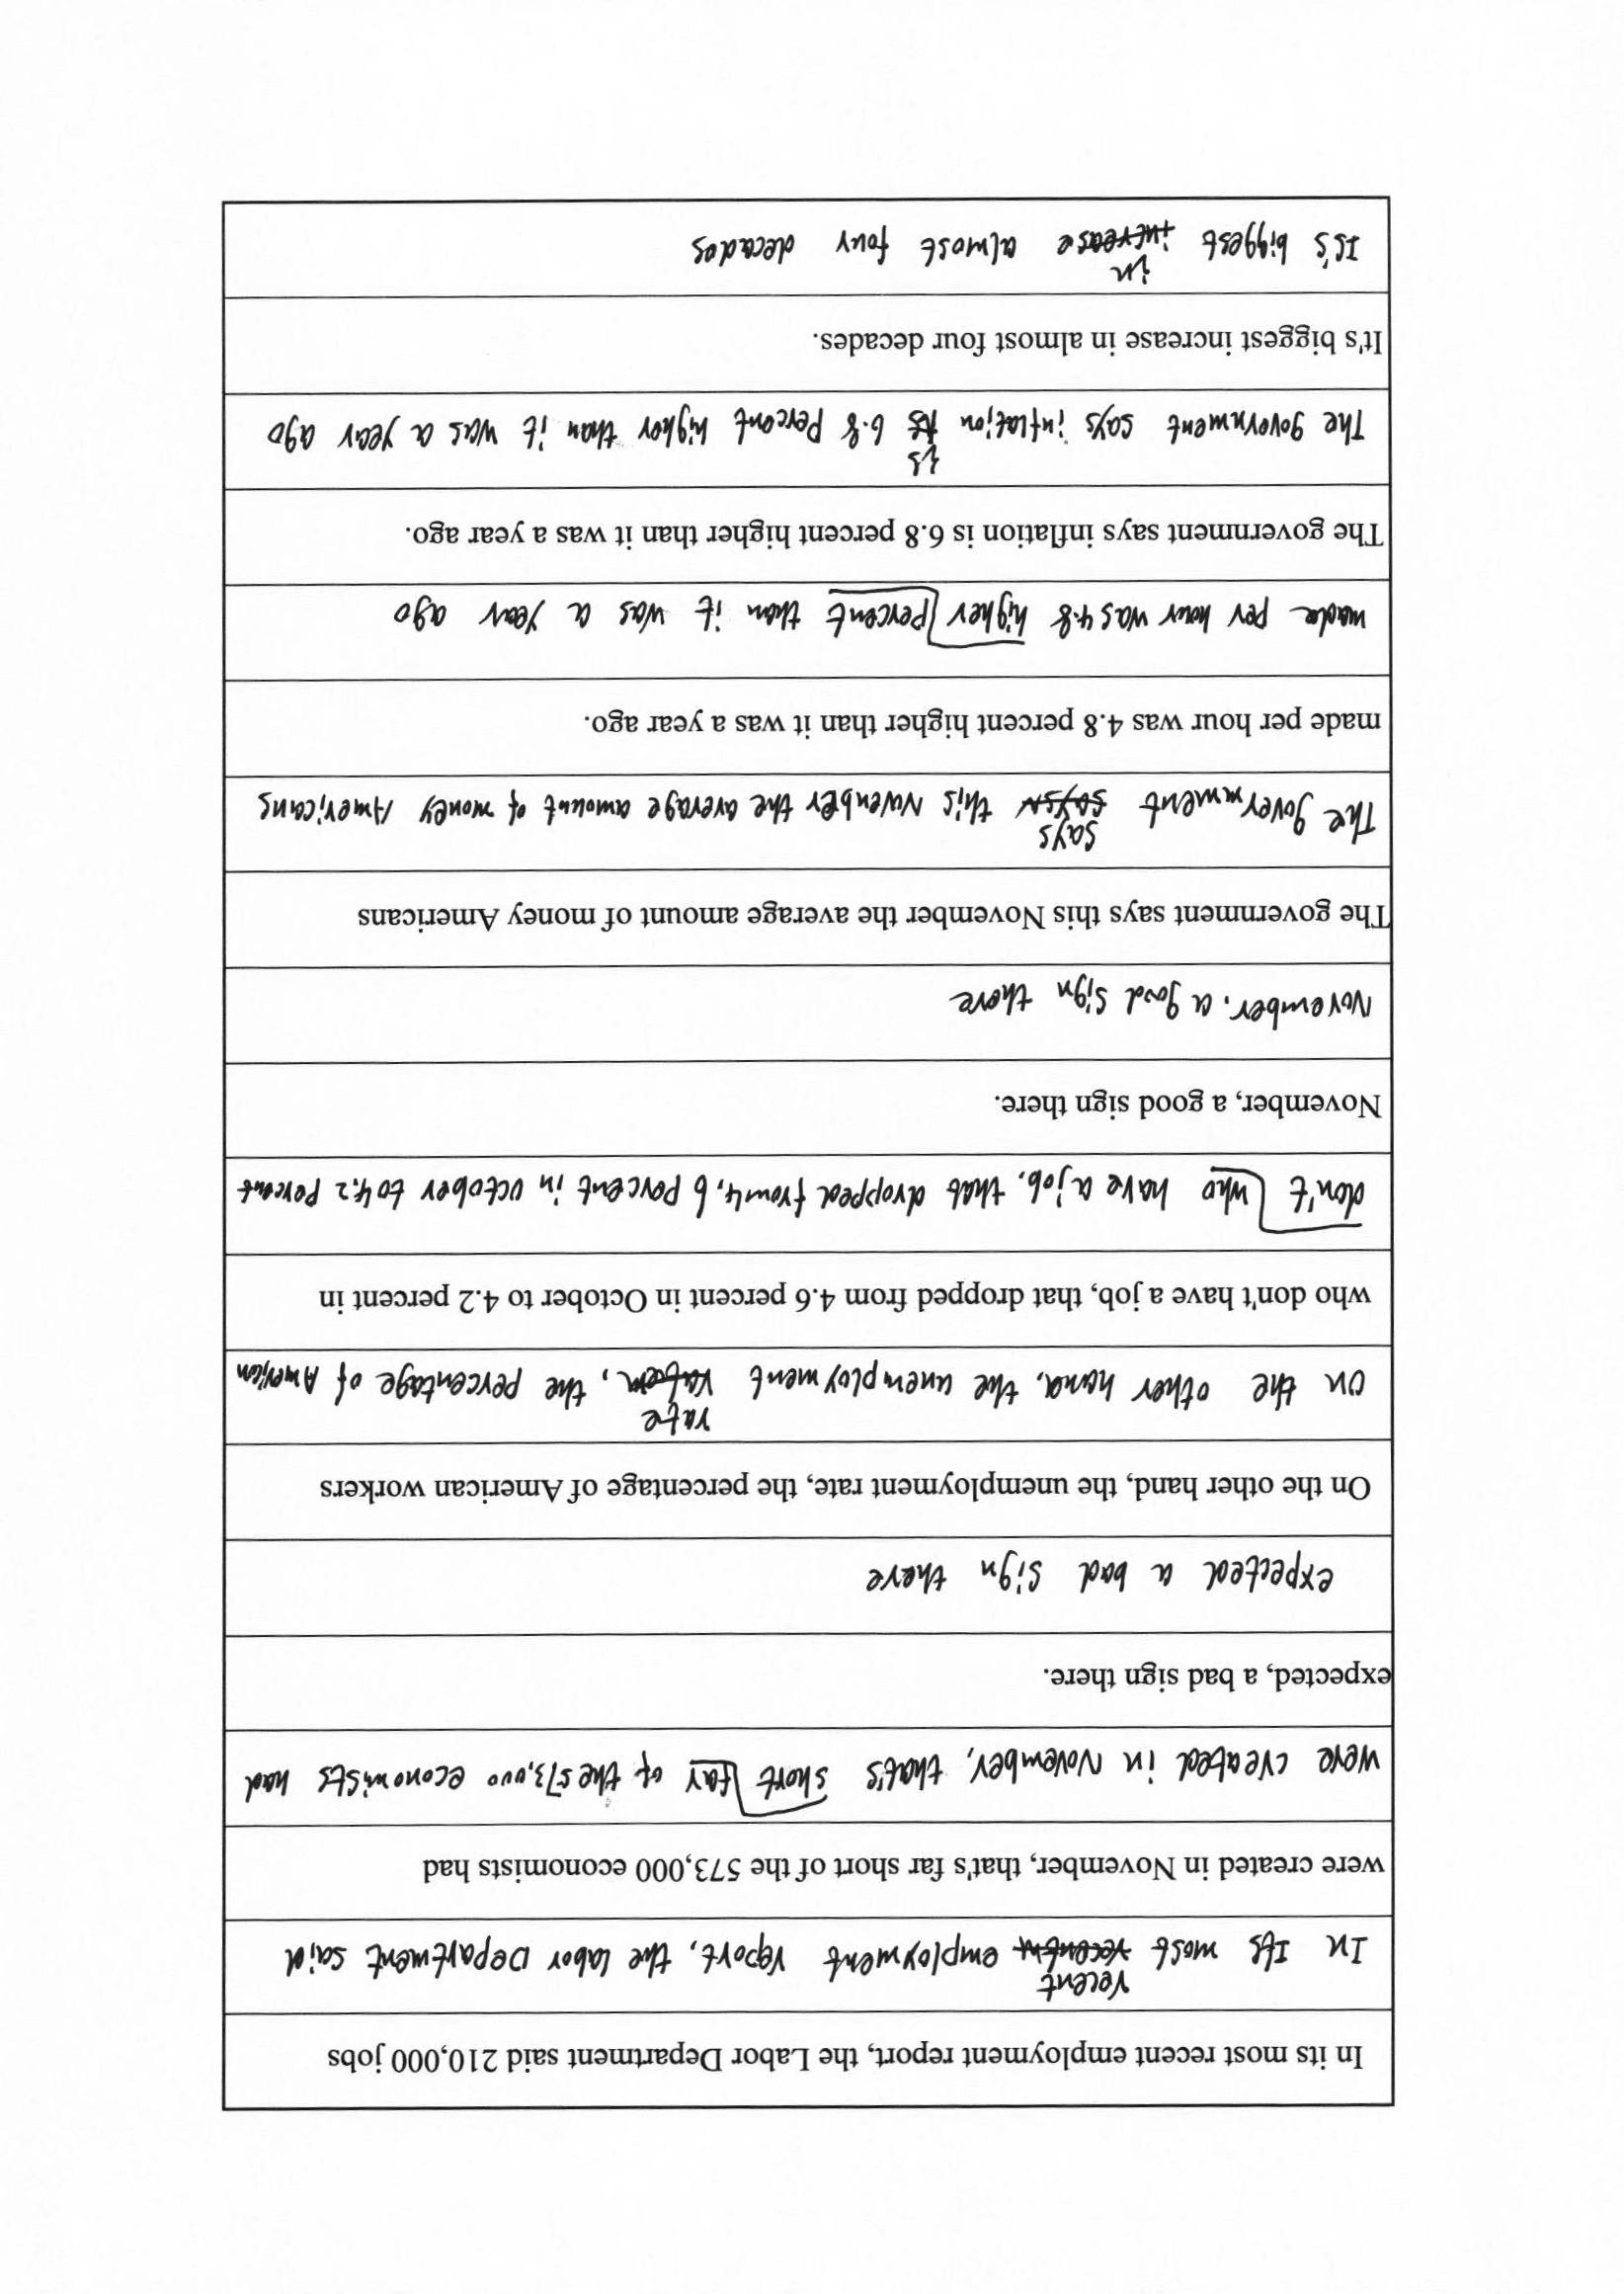 In its most recent employment report, the Labor Department said 210,000 jobs
In Its most recent employment report, the labor Department said
were created in November, that's far short of the 573,000 economists had
were created in November, that's short far of the 573,000 economists had
expected, a bad sign there.
expected a bad sign there
On the other hand, the unemployment rate, the percentage of American workers
on the other hand, the unemployment rate, the percentage of American
who don't have a job, that dropped from 4.6 percent in October to 4.2 percent in
don't who have a job, that dropped from 4.6 percent in october to 4.2 percent
November, a good sign there.
November. a good sign there
The government says this November the average amount of money Americans
The government says this November the average amount of money Americans
made per hour was 4.8 percent higher than it was a year ago.
made per hour was 4.8 higher percent than it was a year ago
The government says inflation is 6.8 percent higher than it was a year ago.
The government says inflation is 6.8 percent higher than it was a year ago
It's biggest increase in almost four decades.
It's biggest in almost four decades